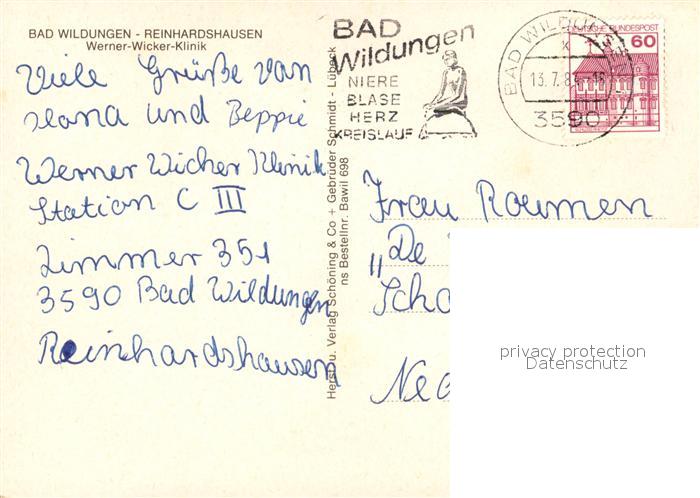 BAD WILDUNGEN - REINHARDSHAUSEN
Werner-Wicker-Klinik
Viele Grüße van
Ilona und Beppie
Werner Wicher Klinik
Station C III
Zimmer 351
3590 Bad Wildungen
Reinhardshausen
Herst. u. Verlag Schöning & Co + Gebrüder Schmidt - Lübeck
ns Bestellnr. Bawil 698
BAD
Wildungen
NIERE
BLASE
HERZ
KREISLAUF
BAD WILDUN
13.7.8
3590
DEUTSCHE BUNDESPOST
60
Frau Roumen
„De
Scho
Ned
privacy protection
Datenschutz